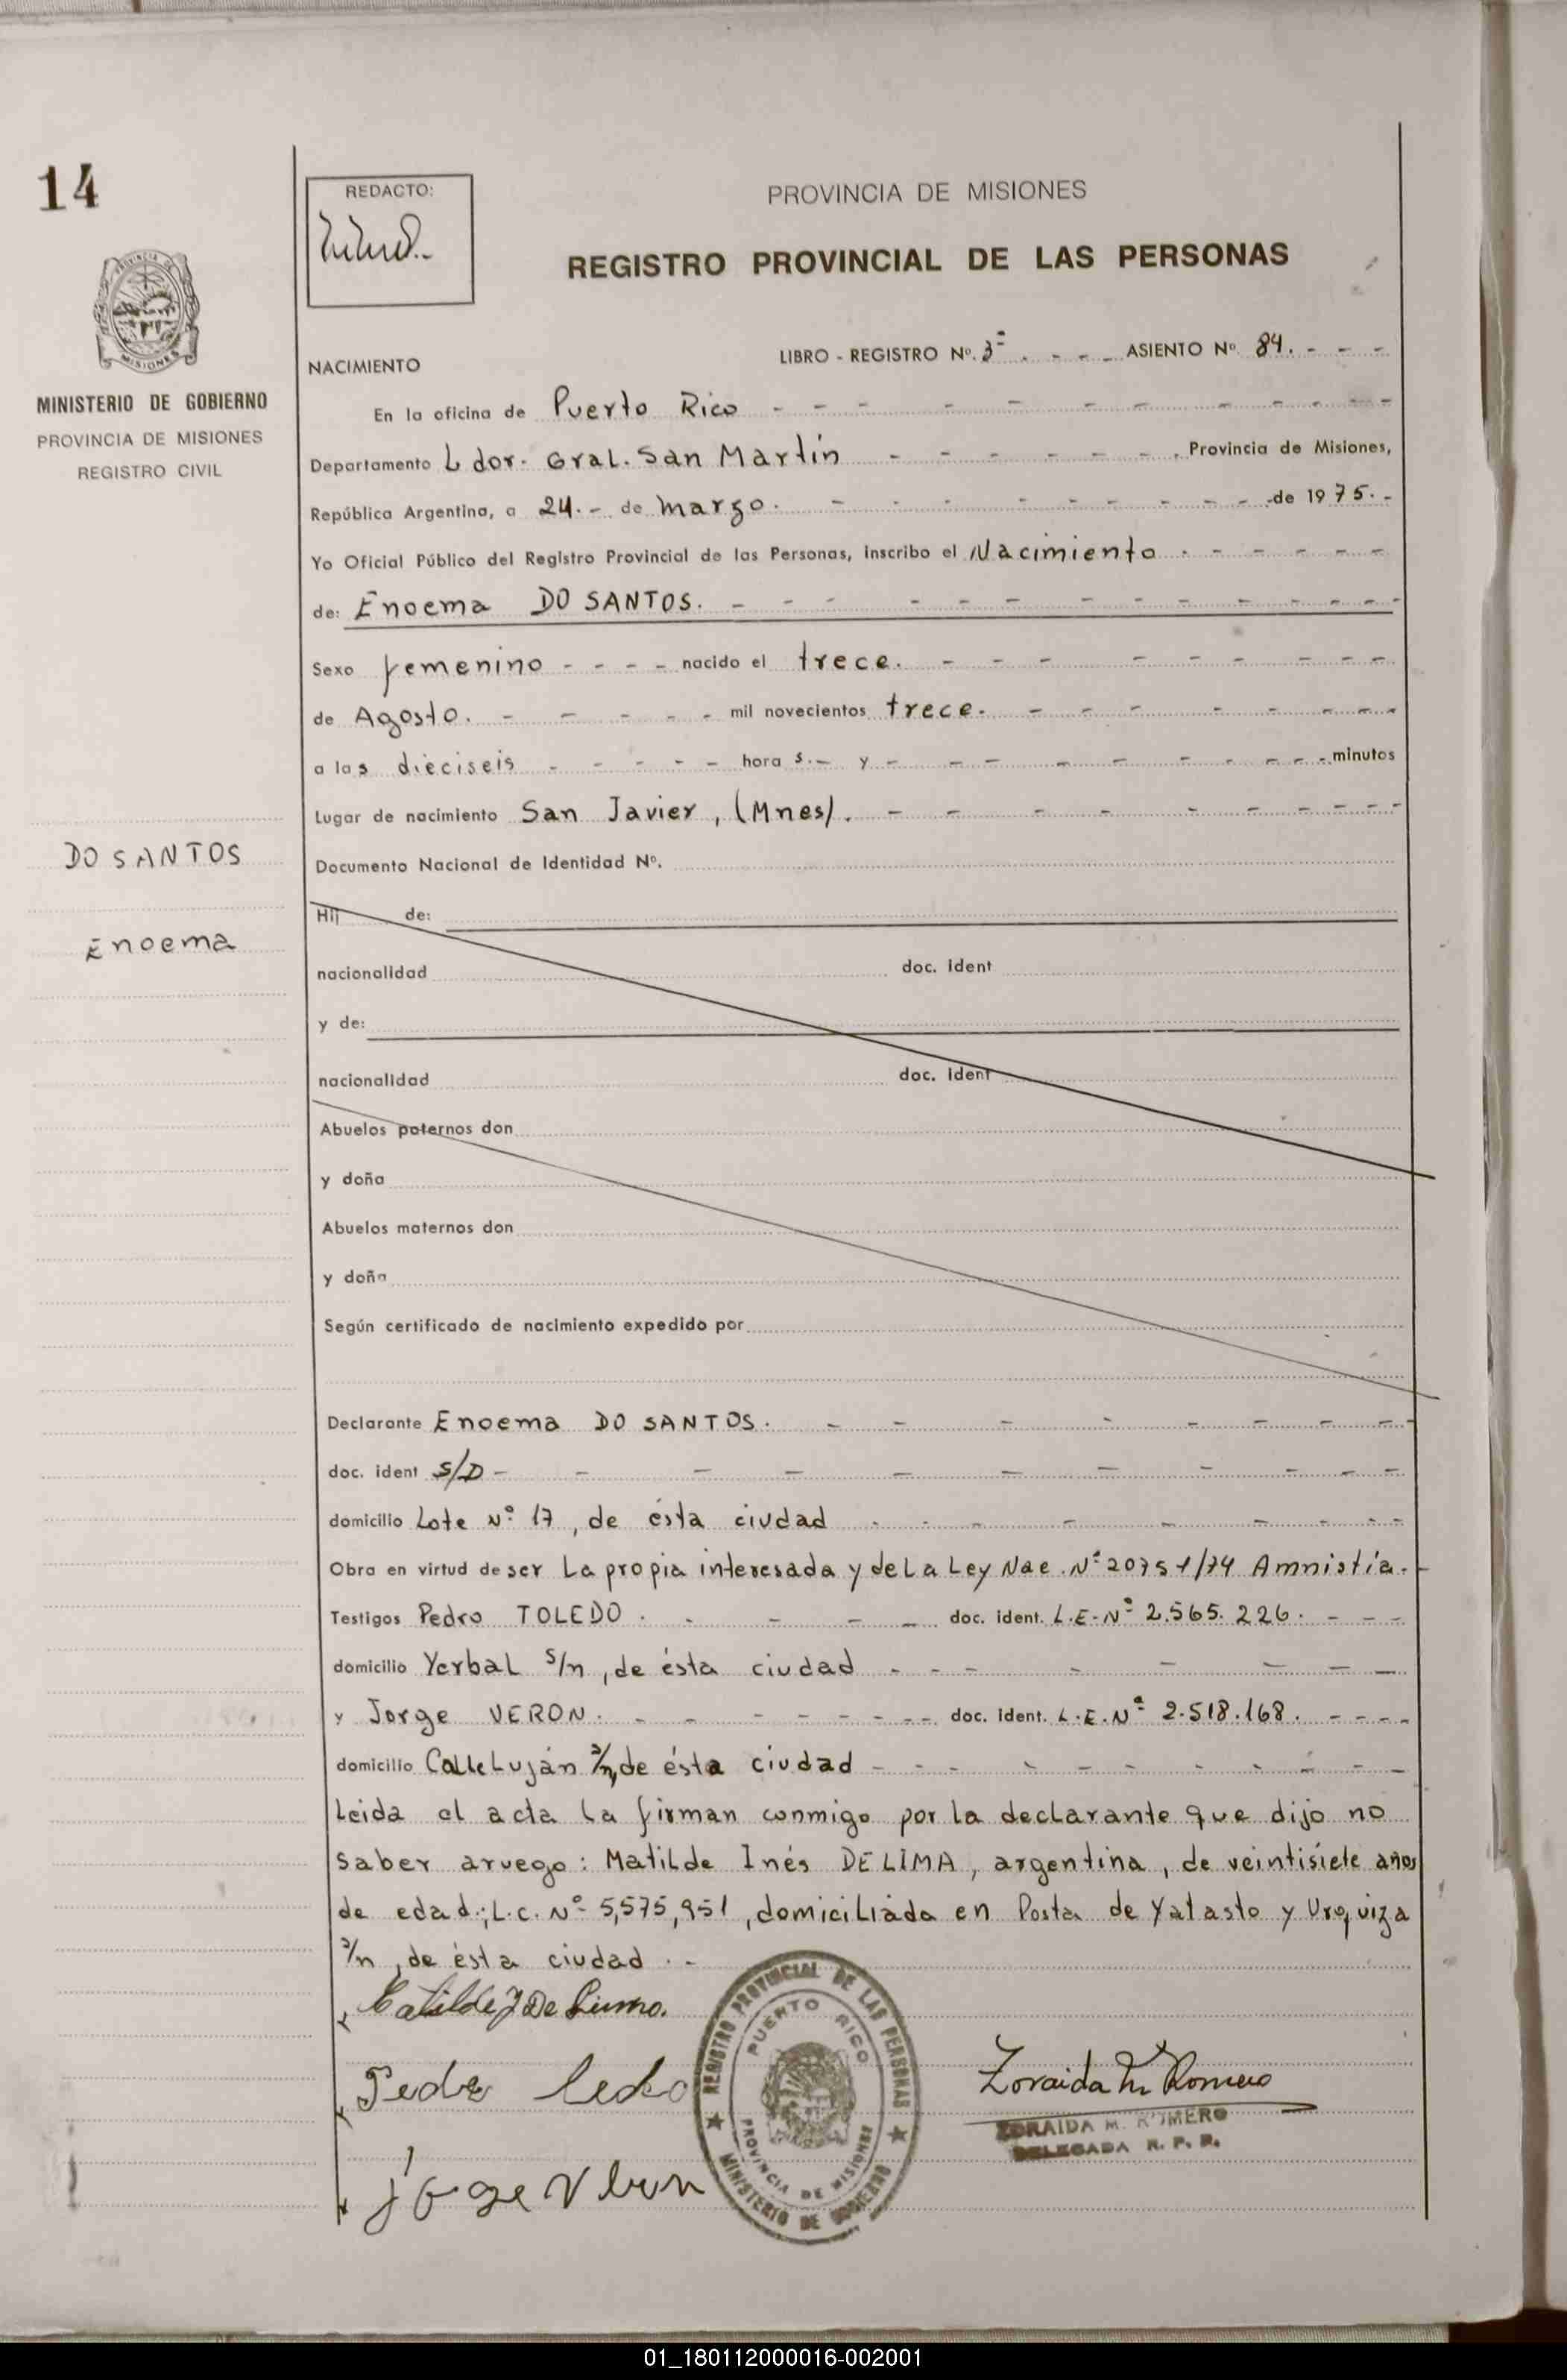 14
REDACTO:
PROVINCIA DE MISIONES
REGISTRO PROVINCIAL DE LAS PERSONAS
MISIONES
MINISTERIO DE GOBIERNO
PROVINCIA DE MISIONES
REGISTRO CIVIL
NACIMIENTO LIBRO - REGISTRO Nº. 3º . - - - ASIENTO Nº. 84. - - -
En la oficina de Puerto Rico - - -
Departamento L dor. Gral. San Martín - - - Provincia de Misiones,
República Argentina, a 24. - de marzo. - - - de 1975. -
Yo Oficial Público del Registro Provincial de las Personas, inscribo el Nacimiento . - - -
de: Enoema DO SANTOS. - - -
Sexo femenino - - - - nacido el trece. - - -
de Agosto. - - - mil novecientos trece. - - -
a las dieciseis - - - hora s. - y - - - minutos
Lugar de nacimiento San Javier, (Mnes). - - -
DO SANTOS
Documento Nacional de Identidad Nº.
Hij de:
Enoema
nacionalidad doc. ident
y de:
nacionalidad doc. ident
Abuelos paternos don
y doña
Abuelos maternos don
y doña
Según certificado de nacimiento expedido por
Declarante Enoema DO SANTOS. - - -
doc. ident S/D - - -
domicilio Lote Nº 17, de ésta ciudad - - -
Obra en virtud de ser La propia interesada y de La Ley Nae. Nº 20751/74 Amnistía. -
Testigos Pedro TOLEDO. - - - doc. ident. L.E.Nº 2.565.226. - - -
domicilio Yerbal s/n, de ésta ciudad - - -
y Jorge VERON. - - - doc. ident. L.E.Nº 2.518.168. - - -
domicilio Calle Luján s/n, de ésta ciudad - - -
Leida el acta la firman conmigo por la declarante que dijo no
saber aruego: Matilde Inés DE LIMA, argentina, de veintisiete años
de edad; L.C. Nº 5,575,951, domiciliada en Posta de Yatasto y Urquiza
s/n, de ésta ciudad . -
Matilde I De Lima.
REGISTRO PROVINCIAL DE LAS PERSONAS
PUERTO RICO
PROVINCIA DE MISIONES
MINISTERIO DE GOBIERNO
Zoraida M Romero
ZORAIDA M. ROMERO
DELEGADA R. P. P.
Jorge Veron
01_180112000016-002001